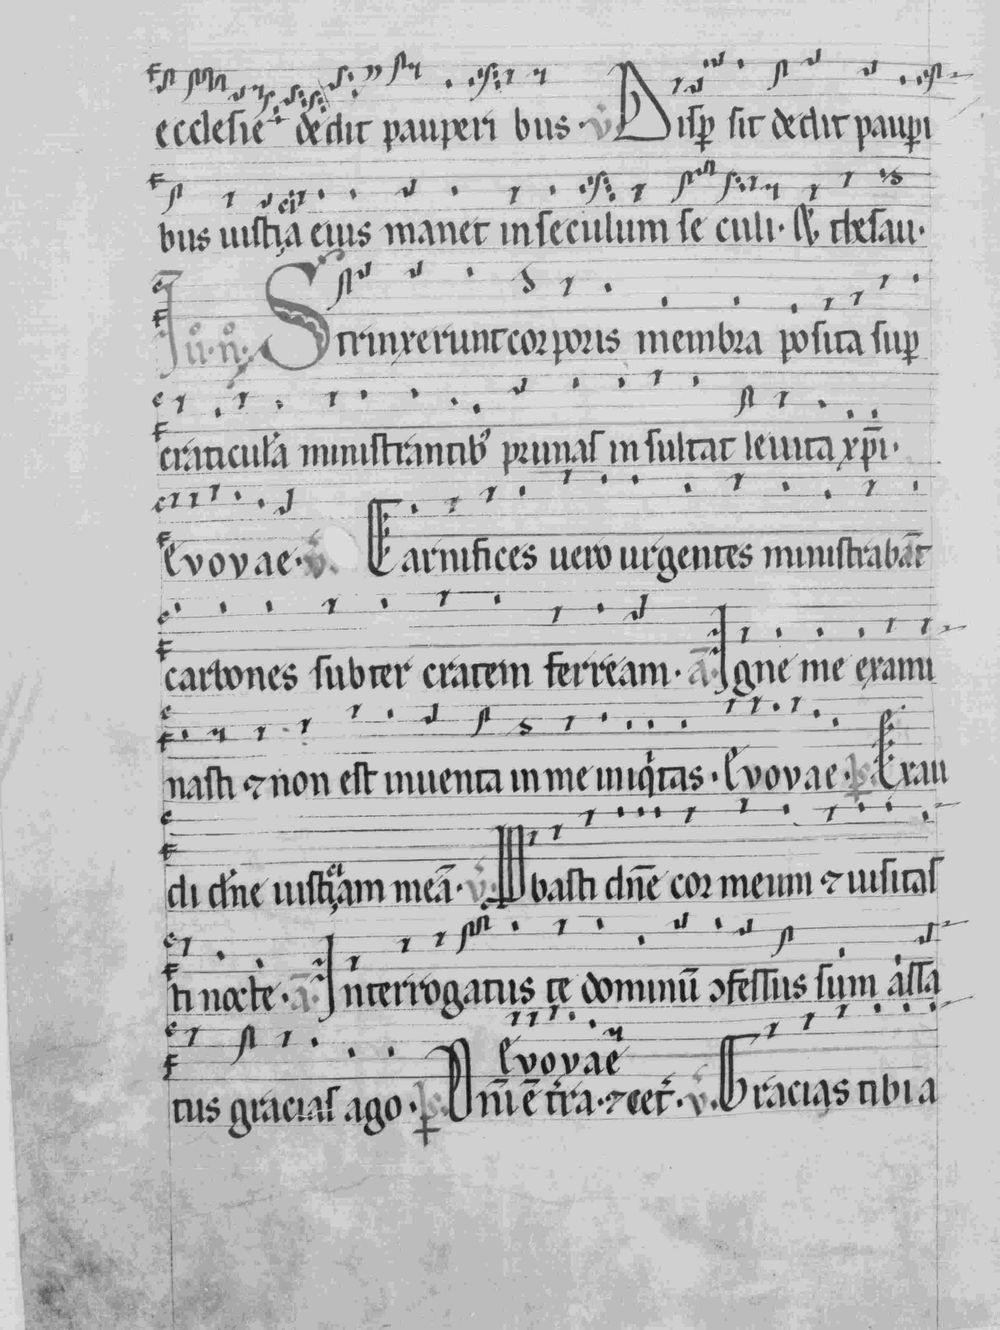 ecclesie dedit pauperi bus · v̄ Disp̄ sit dedit paup̄i
bus iusticia eius manet in seculum se culi · R̄ thesau ·
In · ii · n̊ · Strinxerunt corporis membra posita sup̄
craticula ministrantib᾽ prunas insultat leuita xp̄i ·
Evovae · v̄ . Carnifices uero urgentes ministrabāt
carbones subter cratem ferream · ā · Igne me exami
nasti ⁊ non est inuenta in me iniq̇tas · Evovae · p̄s Exau
di dn̄e iusticiam meā · v̄ · Probasti dn̄e cor meum ⁊ uisitas
ti nocte · ā · Interrogatus te dominū ɔfessus sum assa
Evovae
tus gracias ago · p̄s Dn̄i ē tr̄a · ⁊ cet᾽ · v̄ · Gracias tibi a